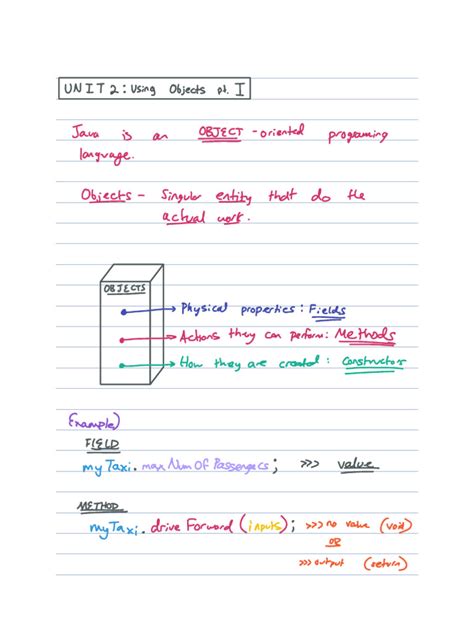 UNIT 2: Using Objects pt. I
Java is an OBJECT-oriented programing
language.
Objects - Singular entity that do the
actual work.
OBJECTS
→ Physical properties: Fields
→ Actions they can perform: Methods
→ How they are created: Constructors
Example)
FIELD
myTaxi.maxNumOfPassengers; >>> value
METHOD
myTaxi.driveForward(inputs); >>> no value (void)
OR
>>> output (return)